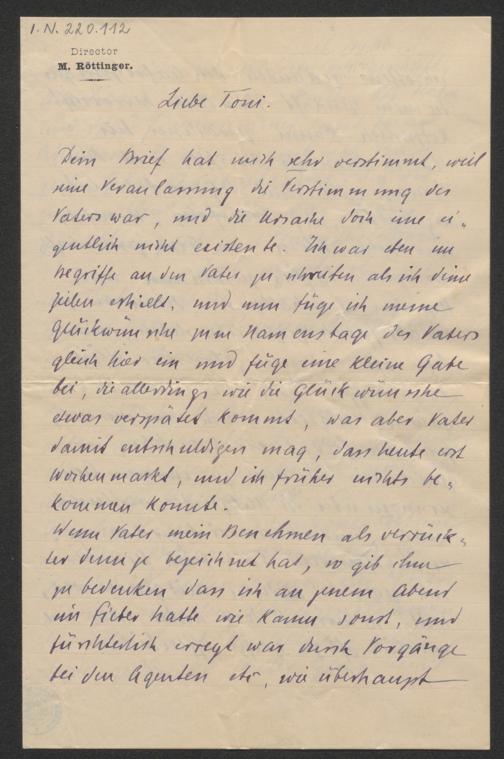 I.N. 220.112
Director
M. Röttinger.
Liebe Toni.
Dein Brief hat mich sehr verstimmt, weil
seine Veranlassung die Verstimmung des
Vaters war, und die Ursache doch eine ei-
gentlich nicht existente. Ich war eben im
Begriffe an den Vater zu schreiben als ich deine
Zeilen erhielt, und nun füge ich meine
Glückwünsche zum Namenstage des Vaters
gleich hier ein und füge eine kleine Gabe
bei, die allerdings wie die Glückwünsche
etwas verspätet kommt, was aber Vater
damit entschuldigen mag, dass heute erst
Wochenmarkt, und ich früher nichts be-
kommen konnte.
Wenn Vater mein Benehmen als verrück-
ter denn je bezeichnet hat, so gib ihm
zu bedenken dass ich an jenem Abend
ein Fieber hatte wie kaum sonst, und
fürchterlich erregt war durch Vorgänge
bei den Agenten etc, wie überhaupt